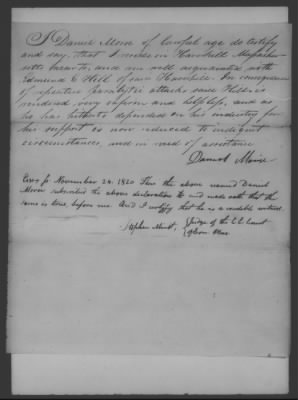 I Daniel Moore of lawful age do testify
and say, that I reside in Haverhill Massachu-
setts &
and am well acquainted with
Edmund C Hill of said Haverhill. In consequence
of repeated paralytic attacks said Hill is
rendered very infirm and helpless, and as
he has hitherto depended on his industry for
his support is now reduced to indigent
circumstances, and in need of assistance
Daniel Moore
Essex ss November 24. 1820 Then the above named Daniel
Moore subscribed the above declaration & and made oath that the
same is true, before me. And I certify that he is a credible witness.
Stephen Minot, Judge of the C C Court